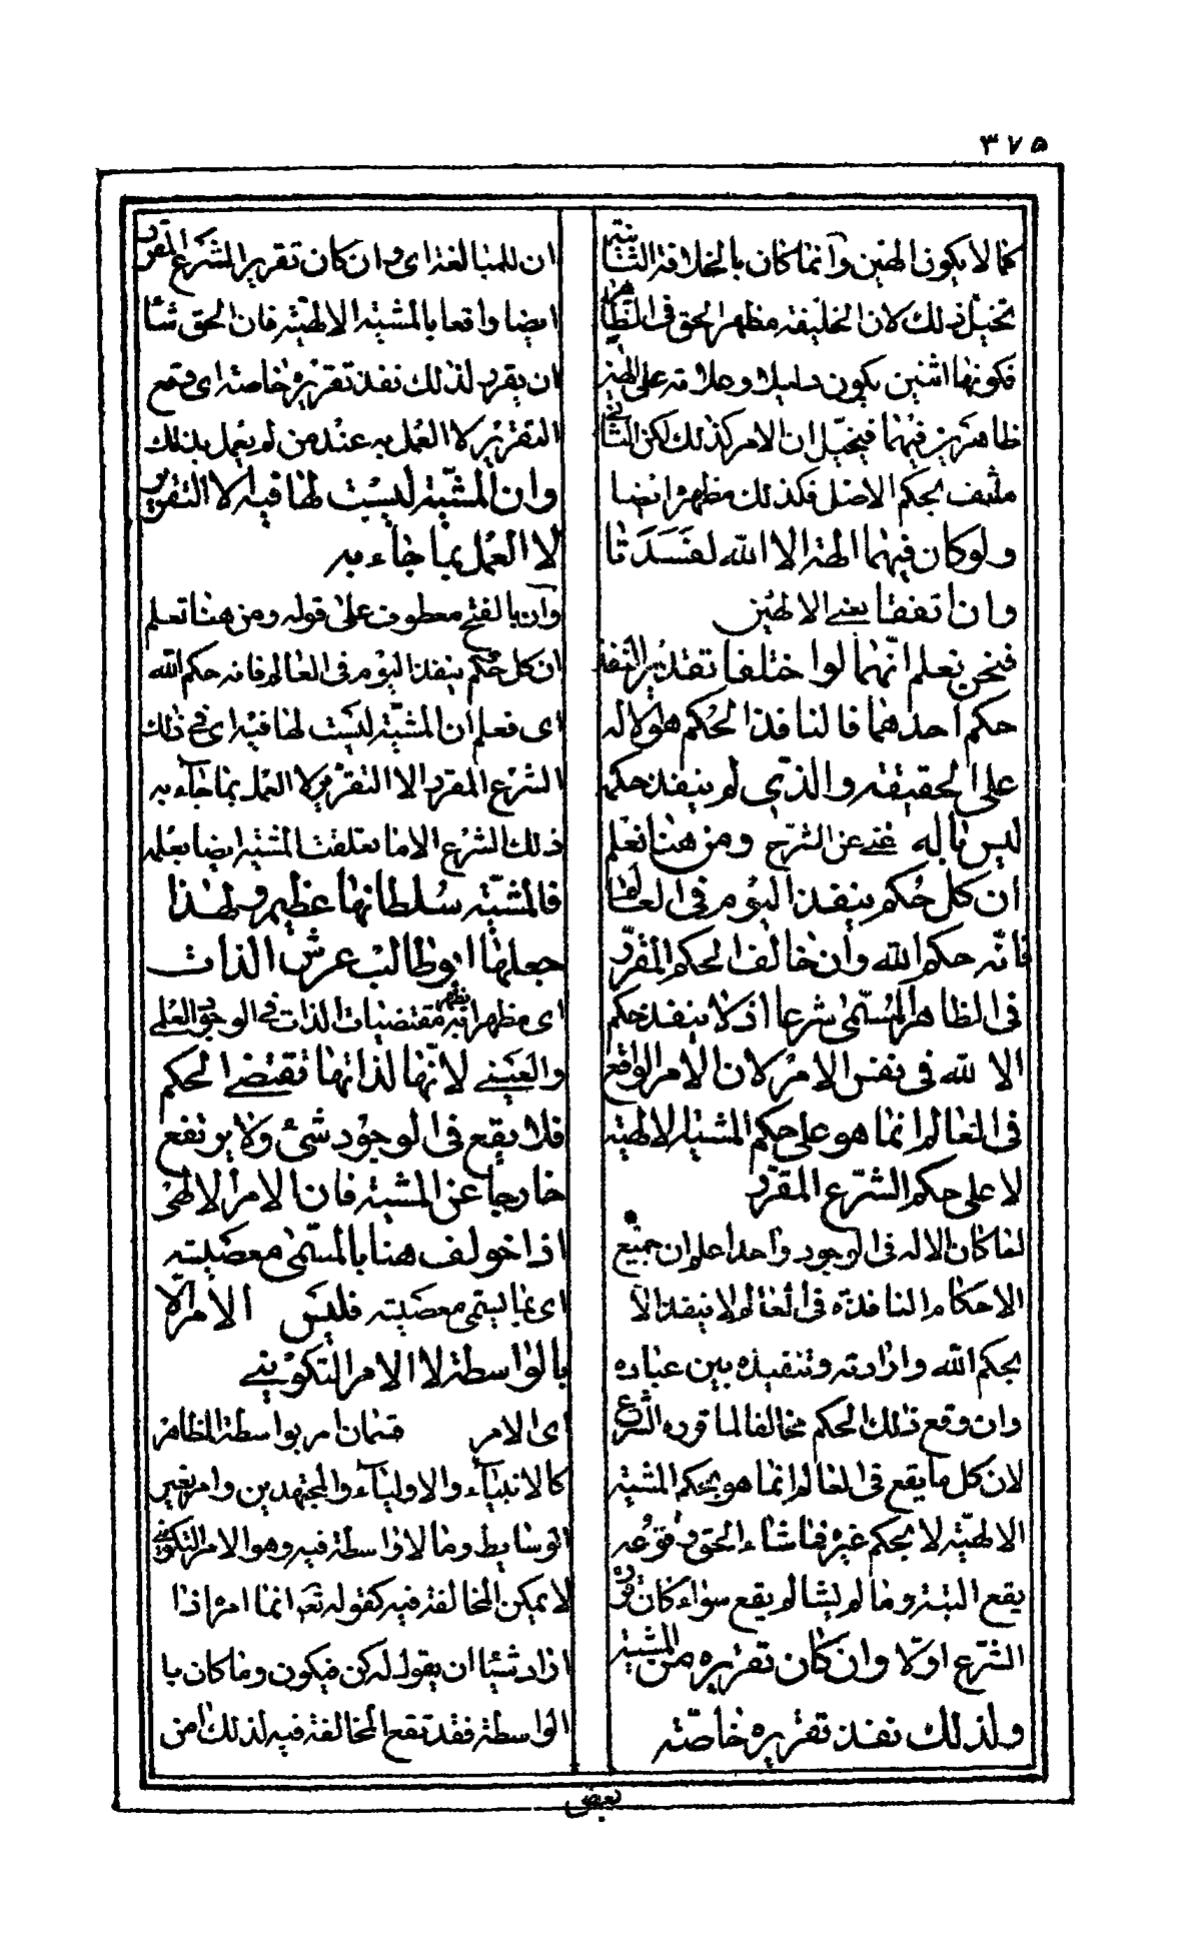 ٣٧٥
كما لا يكون الهين وانما كان بالخلافة الثانية
تخيل ذلك لان الخليفة مظهر الحق فى الظاهر
فكونها اثنين يكون دليلا وعلامة على الهين
ظاهرين فيهما فيخيل ان الامر كذلك لكن الثانى
منتف بحكم الاصل فكذلك مظهره ايضا
ولو كان فيهما الهة الا الله لفسدتا
وان اتفقا يعنى الالهين
فنحن نعلم انهما لو اختلفا تقديرا لنفذ
حكم احدهما فالنافذ الحكم هو الاله
على الحقيقة والذى لم ينفذ حكمه
ليس باله غنى عن الشرح ومن هنا نعلم
ان كل حكم ينفذ اليوم فى العالم
فانه حكم الله وان خالف الحكم المقرر
فى الظاهر المسمى شرعا اذ لا ينفذ حكم
الا لله فى نفس الامر لان الامر الواقع
فى العالم انما هو على حكم المشية الالهية
لا على حكم الشرع المقرر
لما كان الاله فى الوجود واحدا علم ان جميع
الاحكام النافذة فى العالم لا ينفذ الا
بحكم الله وارادته وتنفيذه بين عباده
وان وقع ذلك الحكم مخالفا لما قرره الشرع
لان كل ما يقع فى العالم انما هو بحكم المشية
الالهية لا بحكم غيره فما شاء الحق وقوعه
يقع البتة وما لم يشا لم يقع سواء كان قرره
الشرع او لا وان كان تقريره من المشية
ولذلك نفذ تقريره خاصة
ان للمبالغة اى وان كان تقرير الشرع المقرر
ايضا واقعا بالمشية الالهية فان الحق شاء
ان يقرر لذلك نفذ تقريره خاصة اى وقع
التقرير لا العمل به عند من لم يعمل بذلك
وان المشية ليست لها فيه الا التقرير
لا العمل بما جاء به
وان بالفتح معطوف على قوله ومن هنا تعلم
ان كل حكم ينفذ اليوم فى العالم فانه حكم الله
اى فعلم ان المشية ليست لها فيه اى فى ذلك
الشرع المقرر الا التقرير لا العمل بما جاء به
ذلك الشرع الا ما تعلقت المشية ايضا بعمله
فالمشية سلطانها عظيم ولهذا
جعلها ابو طالب عرش الذات
اى مظهرا يظهر فيه مقتضيات الذات فى الوجود العلمى
والعينى لانها لذاتها تقتضى الحكم
فلا يقع فى الوجود شئ ولا يرتفع
خارجا عن المشية فان الامر الالهى
اذا خولف هنا بالمسمى معصية
اى بما يسمى معصية فليس الامر الا
بالواسطة لا الامر التكوينى
اى الامر قسمان امر بواسطة المظاهر
كالانبياء والاولياء والمجتهدين وامر بغير
الوسايط وما لا واسطة فيه وهو الامر التكوينى
لا يمكن المخالفة فيه كقوله تعه انما امره اذا
اراد شيئا ان يقول له كن فيكون وما كان با
الواسطة فقد تقع المخالفة فيه لذلك امن
بعض